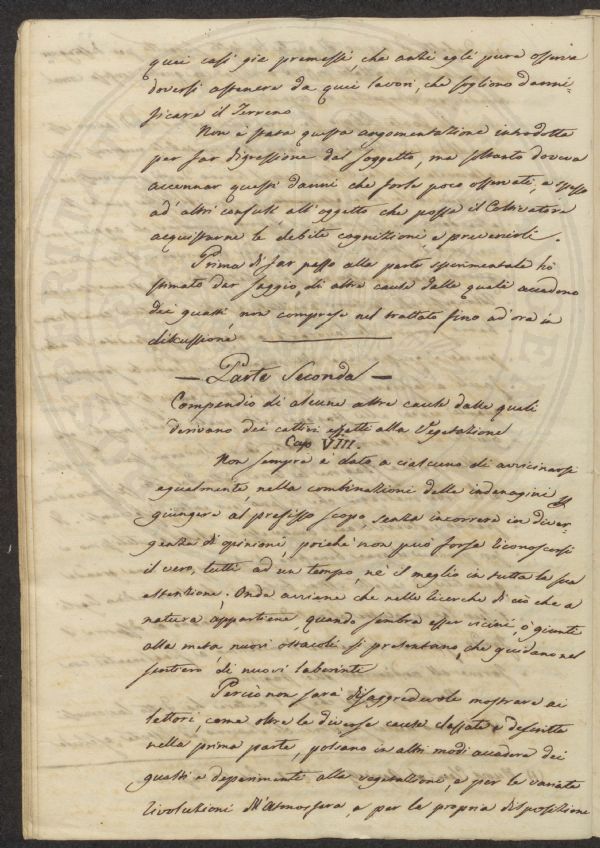 quei casi già premessi, che anzi egli pure osserva
doversi astenere da quei lavori, che sogliono danni-
ficare il Terreno
Non è stata questa argomentazione introdotta
per far digressione dal soggetto, ma soltanto doveva
accennar questi danni che forse poco osservati, e spesso
ad' altri confusi all' oggetto che possa il Coltivatore
acquistarne le debite cognizioni, e prevenirli.
Prima di far passo alla parte sperimentale ho
stimato dar saggio, di altre cause dalle quali accadono
dei guasti, non comprese nel trattato fino ad' ora in
discussione
— Parte Seconda —
Compendio di alcune altre cause dalle quali
derivano dei cattivi effetti alla Vegetazione
Cap VIII.
Non sempre è dato a ciascuno di avvicinarsi
egualmente, nella combinazioni delle indagini
giungere al prefisso scopo senza incorrere in diver-
genza di opinioni, poiché non può forse riconoscersi
il vero, tutti ad un tempo, né il meglio in tutta la sua
estenzione; Onde avviene che nelle ricerche di ciò che a
natura appartiene, quando sembra esser vicini, o giunti
alla meta, nuovi ostacoli si presentano, che guidano nel
sentiero, di nuovi laberinti
Perciò non sarà disaggredevole mostrare ai
lettori, come oltre le diverse cause classate e descritte
nella prima parte, possano in altri modi accadere dei
guasti e deperimenti alla vegetazione, e per le variate
rivoluzioni dell'Atmosfera, e per la propria disposizione